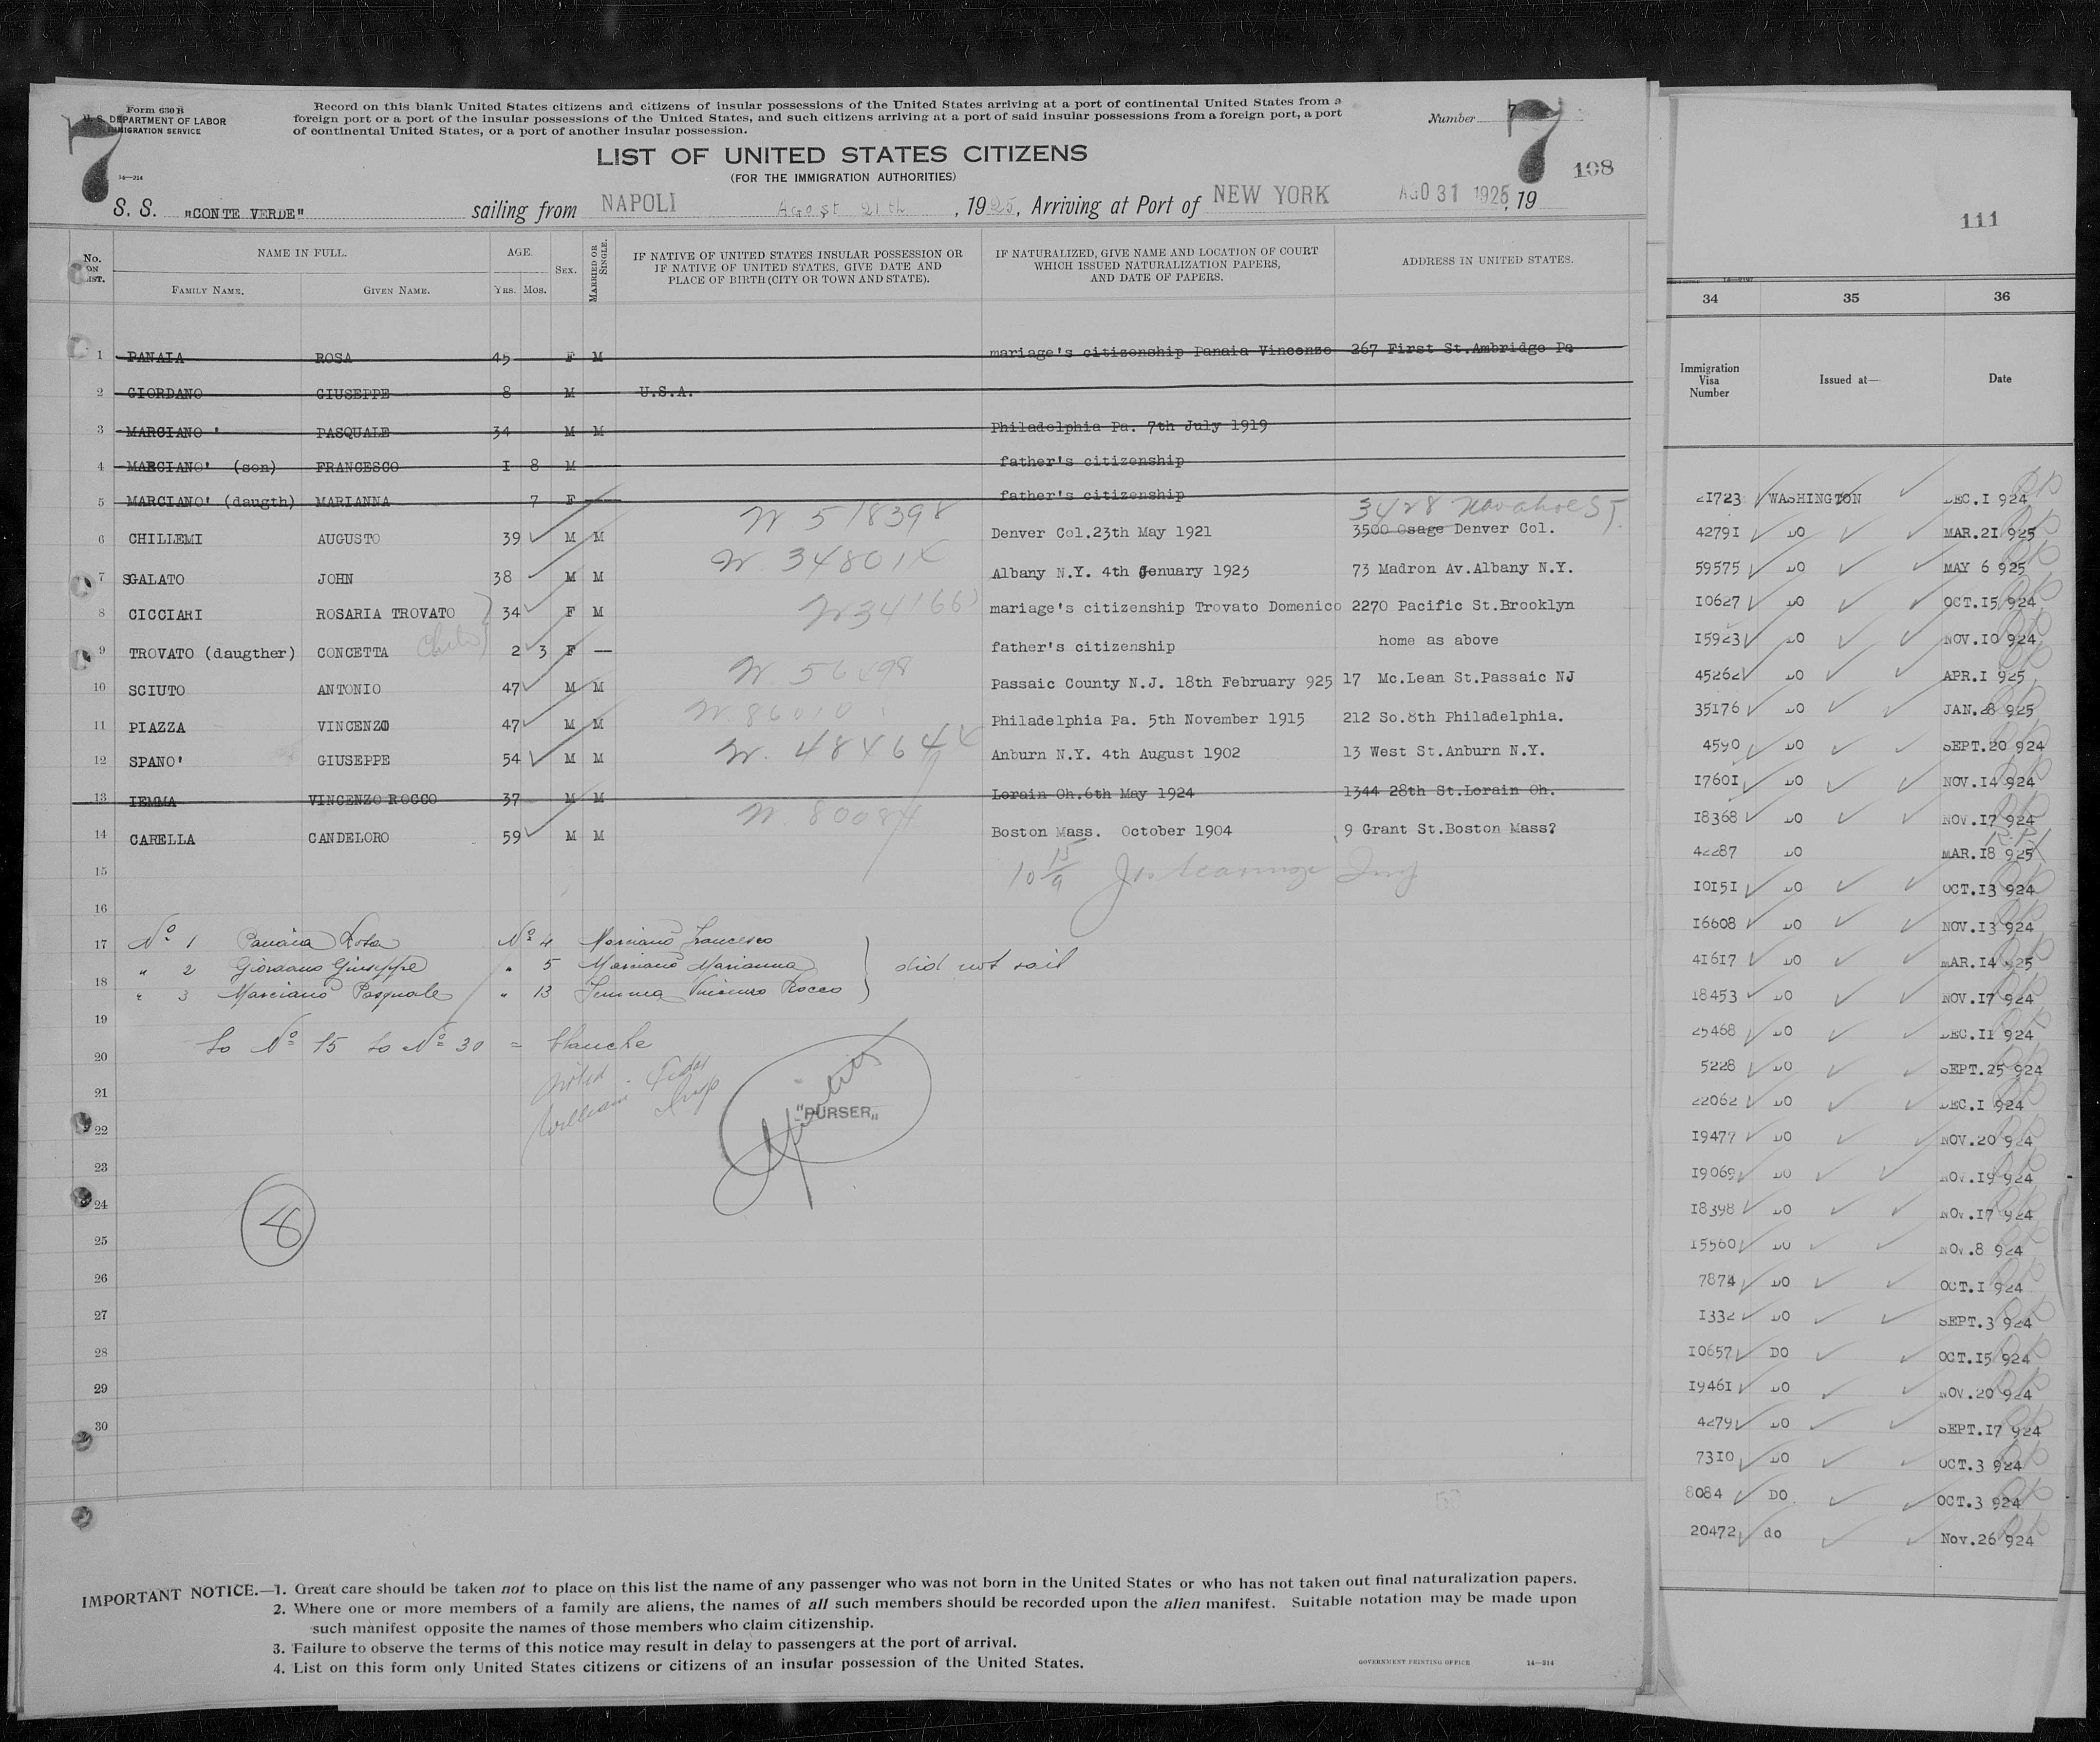 Form 630 B
U. S. DEPARTMENT OF LABOR
IMMIGRATION SERVICE
14—314
7
Record on this blank United States citizens and citizens of insular possessions of the United States arriving at a port of continental United States from a
foreign port or a port of the insular possessions of the United States, and such citizens arriving at a port of said insular possessions from a foreign port, a port
of continental United States, or a port of another insular possession.
Number 7
7
108
LIST OF UNITED STATES CITIZENS
(FOR THE IMMIGRATION AUTHORITIES)
S. S. "CONTE VERDE" sailing from NAPOLI Agost 21th, 1925, Arriving at Port of NEW YORK AGO 31 1925, 19
No. ON LIST.
NAME IN FULL.
FAMILY NAME. GIVEN NAME.
AGE.
YRS. MOS.
SEX.
MARRIED OR SINGLE.
IF NATIVE OF UNITED STATES INSULAR POSSESSION OR
IF NATIVE OF UNITED STATES, GIVE DATE AND
PLACE OF BIRTH (CITY OR TOWN AND STATE).
IF NATURALIZED, GIVE NAME AND LOCATION OF COURT
WHICH ISSUED NATURALIZATION PAPERS,
AND DATE OF PAPERS.
ADDRESS IN UNITED STATES.
1 PANAIA ROSA 45 F M mariage's citizenship Panaia Vincenzo 267 First St.Ambridge Pa
2 GIORDANO GIUSEPPE 8 M U.S.A.
3 MARCIANO' PASQUALE 34 M M Philadelphia Pa. 7th July 1919
4 MARCIANO' (son) FRANCESCO I 8 M father's citizenship
5 MARCIANO' (daugth) MARIANNA 7 F — father's citizenship
W 518398 3428 Navahoe ST.
6 CHILLEMI AUGUSTO 39 M M Denver Col.23th May 1921 3500 Osage Denver Col.
7 SGALATO JOHN 38 M M Albany N.Y. 4th Jenuary 1923 73 Madron Av.Albany N.Y.
8 CICCIARI ROSARIA TROVATO 34 F M mariage's citizenship Trovato Domenico 2270 Pacific St.Brooklyn
9 TROVATO (daugther) CONCETTA 2 3 F — father's citizenship home as above
10 SCIUTO ANTONIO 47 M M Passaic County N.J. 18th February 925 17 Mc.Lean St.Passaic NJ
11 PIAZZA VINCENZO 47 M M Philadelphia Pa. 5th November 1915 212 So.8th Philadelphia.
12 SPANO' GIUSEPPE 54 M M Anburn N.Y. 4th August 1902 13 West St.Anburn N.Y.
13 IEMMA VINCENZO ROCCO 37 M M Lorain Oh.6th May 1924 1344 28th St.Lorain Oh.
14 CARELLA CANDELORO 59 M M Boston Mass. October 1904 9 Grant St.Boston Mass?
15
16
17 Nº 1 Panaia Rosa Nº 4 Marcianò Francesco
" 2 Giordano Giuseppe " 5 Marcianò Marianna did not sail
18 " 3 Marcianò Pasquale " 13 Iemma Vincenzo Rocco
19
to Nº 15 to Nº 30 = blanche
20
21
"PURSER"
22
23
24
8
25
26
27
28
29
30
IMPORTANT NOTICE.—1. Great care should be taken not to place on this list the name of any passenger who was not born in the United States or who has not taken out final naturalization papers.
2. Where one or more members of a family are aliens, the names of all such members should be recorded upon the alien manifest. Suitable notation may be made upon
such manifest opposite the names of those members who claim citizenship.
3. Failure to observe the terms of this notice may result in delay to passengers at the port of arrival.
4. List on this form only United States citizens or citizens of an insular possession of the United States.
GOVERNMENT PRINTING OFFICE 14—314
111
34 35 36
Immigration Visa Number Issued at— Date
21723 WASHINGTON DEC.I 924
42791 DO MAR.21 925
59575 DO MAY 6 925
10627 DO OCT.15 924
15923 DO NOV.10 924
45262 DO APR.I 925
35176 DO JAN.28 925
4590 DO SEPT.20 924
17601 DO NOV.14 924
18368 DO NOV.17 924
42287 DO MAR.18 925
10151 DO OCT.13 924
16608 DO NOV.13 924
41617 DO MAR.14 925
18453 DO NOV.17 924
25468 DO DEC.11 924
5228 DO SEPT.25 924
22062 DO DEC.I 924
19477 DO NOV.20 924
19069 DO NOV.19 924
18398 DO NOV.17 924
15560 DO NOV.8 924
7874 DO OCT.I 924
1332 DO SEPT.3 924
10657 DO OCT.15 924
19461 DO NOV.20 924
4279 DO SEPT.17 924
7310 DO OCT.3 924
8084 DO OCT.3 924
20472 do Nov.26 924